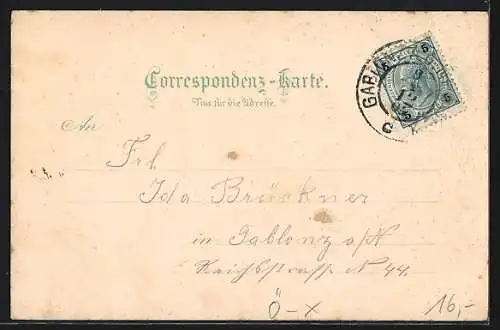 Correspondenz-Karte.
Nur für die Adresse.
An
Frl.
Ida Brückner
in Gablonz a/N
Reichsstrasse N 44.
Ö-X
16,-
5
5
5
GABL